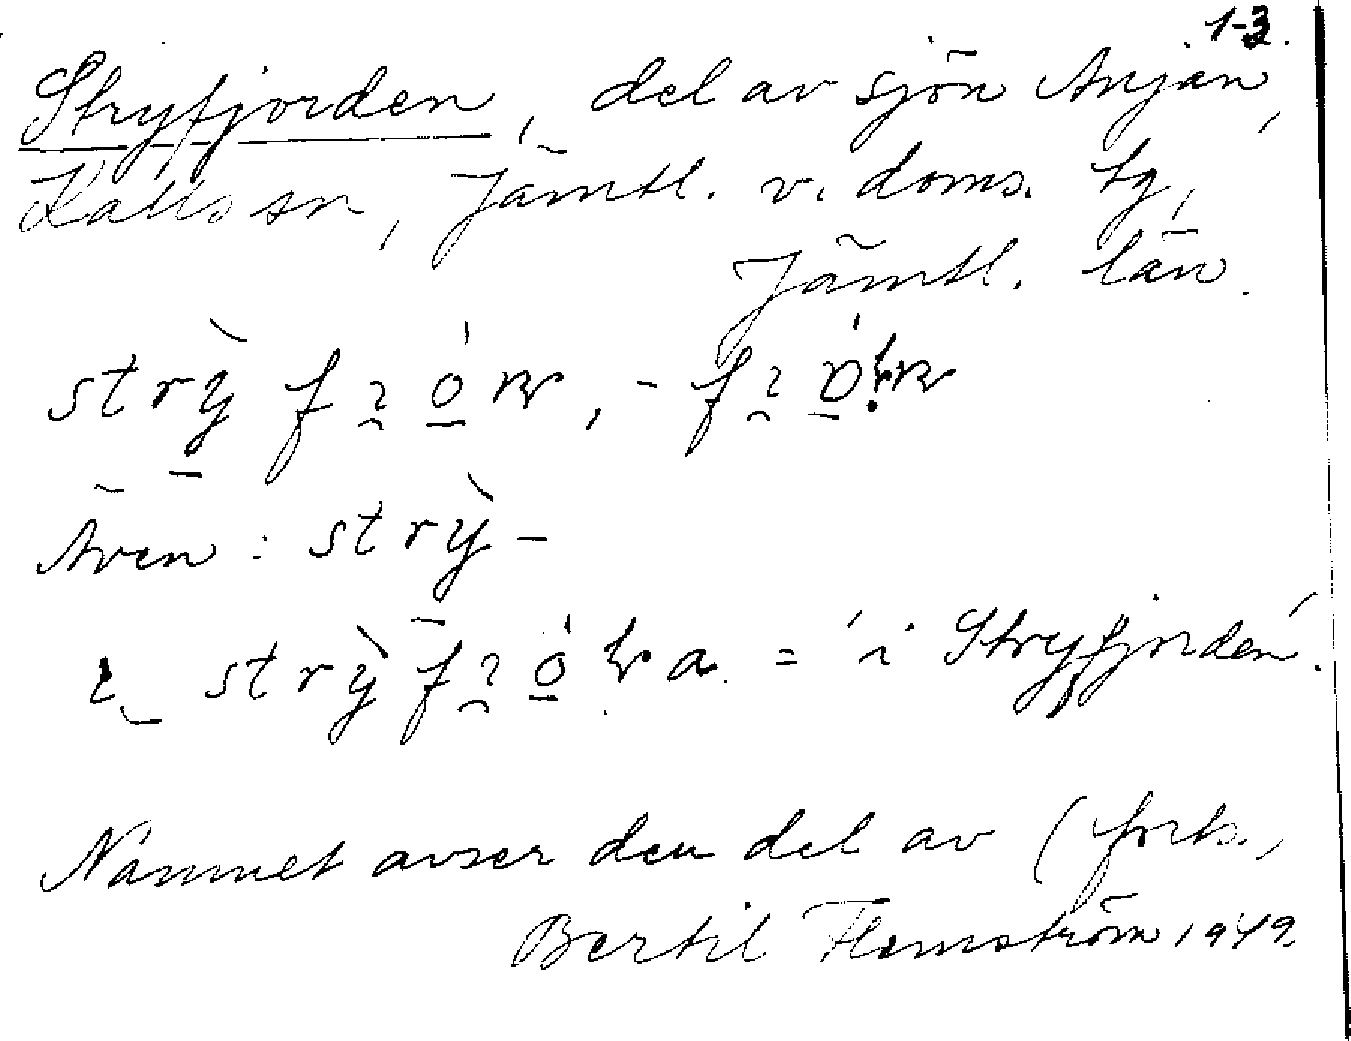 1-3.
Stryfjorden, del av sjön Anjan,
Kalls sn, Jämtl. v. doms. tg,
Jämtl. län.
Även: strỳ-
= 'i Stryfjorden'.
Namnet avser den del av (forts.,
Bertil Flemström 1949.